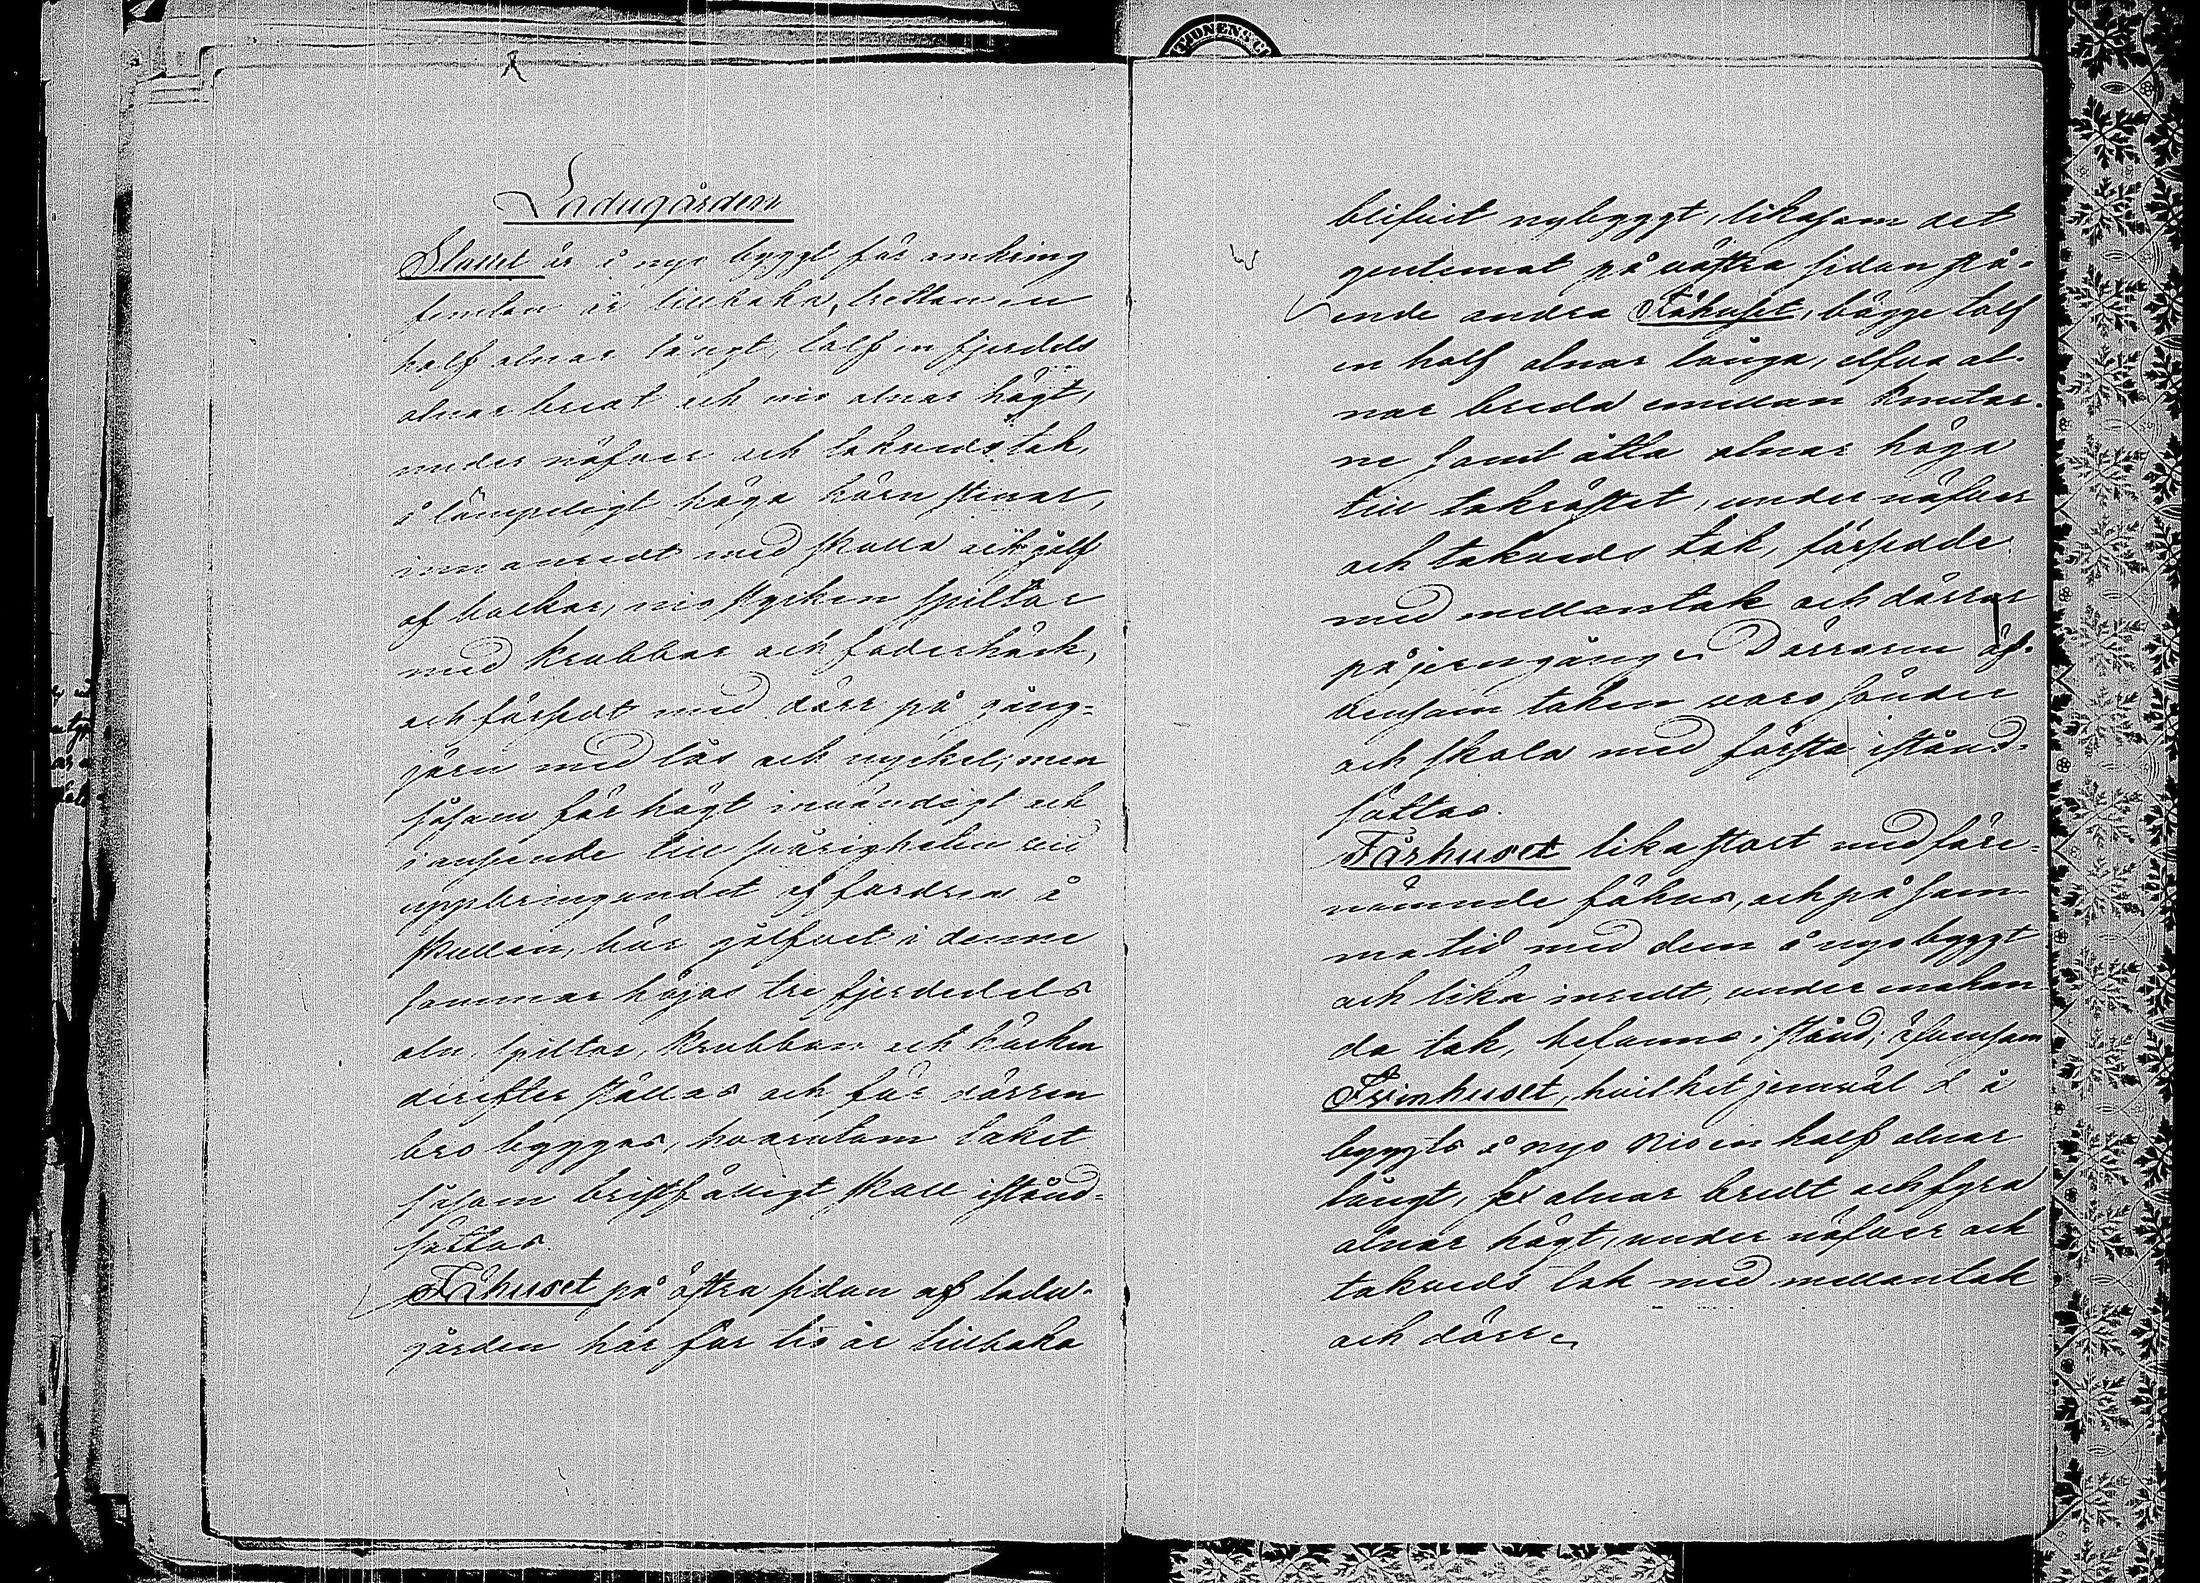 Ladugården
Stallet är å nyo byggt för omkring
femton år tillbaka, tretton en
half alnar långt, tolf en fjerdels
alnar bredt och nio alnar högt,
under näfver och takveds tak,
å lämpeligt höga hörn stenar,
inn anredt med skulla och golf
af balkar, nio stycken spiltor
med krubbor och foderhäck,
och försedt med dörr på gång-
järn med lås och nyckel; men
såsom för högt invändigt och
i anseende till svårigheten vid
uppbringandet af fordren å
skullen, bör golfvet i denne
sommar höjas tre fjerdedels
aln, spiltor, krubbor och häcken
derefter ställas och för dörren
bro byggas, hvarutom taket
såsom bristfälligt skall istånd-
sättas.
Fähuset på östra sidan af ladu-
gården har för tio år tillbaka
blifvit nybyggt, likasom det
gentemot på västra sidan stå-
ende andra Fähuset, bägge tolf
en half alnar långa, elfva al-
nar breda emellan knutar-
ne samt åtta alnar höga
till takröstet, under näfver
och takveds tak, försedde
med mellantak och dörrar
på jerngångor. Dörrarne äf-
vensom taken voro sönder
och skola med första istånd-
sättas.
Fårhuset lika stort med före-
nämnde fähus, och på sam-
ma tid med dem å nyo byggt
och lika inredt, under enahan-
da tak, befanns i stånd; äfvensom
Svinhuset, hvilket jemväl
byggts å nyo nio en half alnar
långt, sex alnar bredt och fyra
alnar högt, under näfver och
takveds tak med mellantak
och dörr.